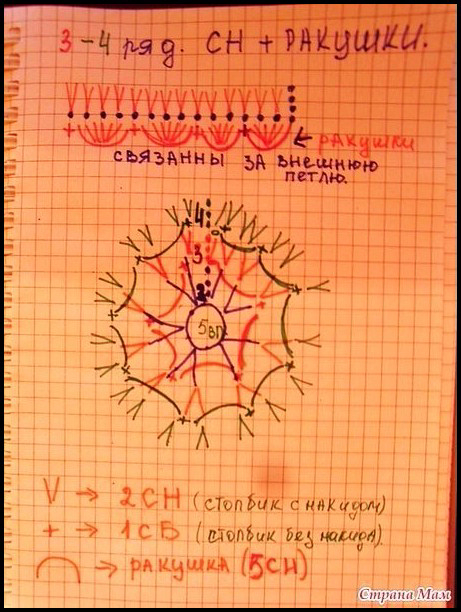 3-4 ряд. СН + РАКУШКИ.
← РАКУШКИ
СВЯЗАННЫ ЗА ВНЕШНЮЮ
ПЕТЛЮ.
4
3
2
5вп
V → 2СН (столбик с накидом)
+ → 1СБ (столбик без накида).
⌒ → РАКУШКА (5СН)
Страна Мам